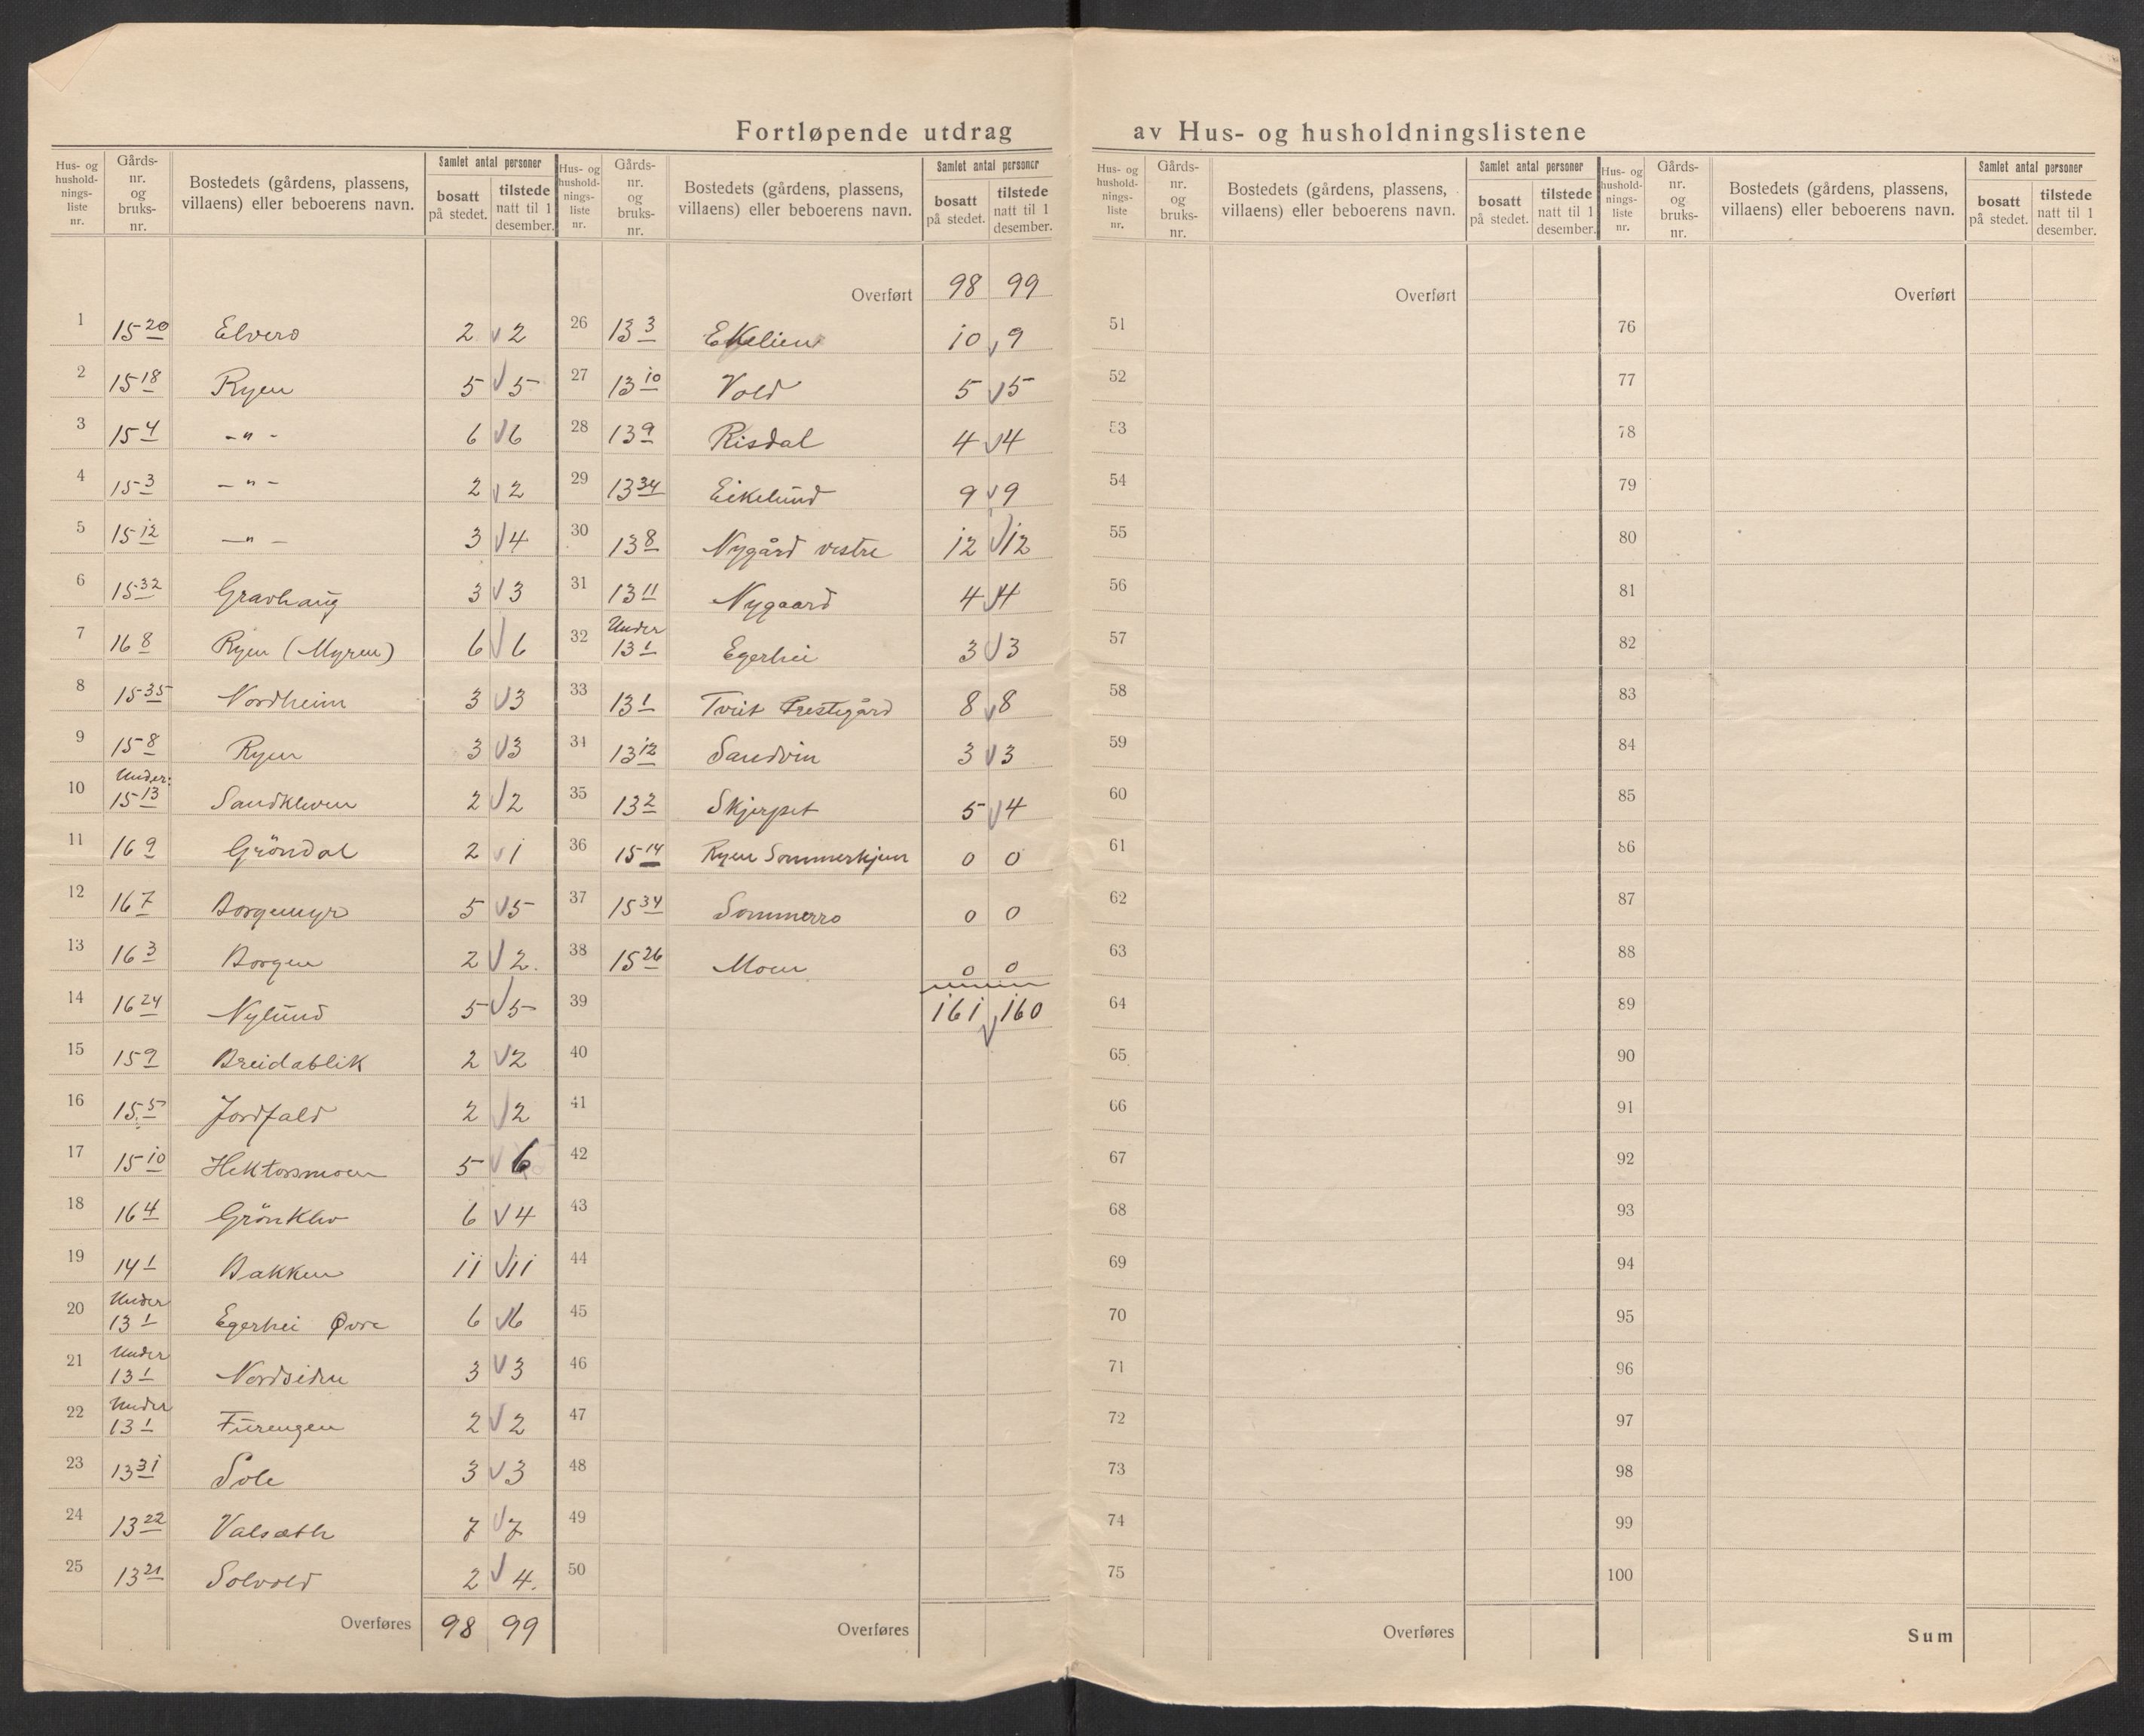 Fortløpende utdrag av Hus- og husholdningslistene
Hus- og husholdningsliste nr. | Gårdsnr. og bruksnr. | Bostedets (gårdens, plassens, villaens) eller beboerens navn. | Samlet antal personer | bosatt på stedet. | tilstede natt til 1 desember.
1 15 20 Elvero 2 2
2 15 18 Ryen 5 5
3 15 4 - " - 6 6
4 15 3 - " - 2 2
5 15 12 - " - 3 4
6 15 32 Gravhaug 3 3
7 16 8 Ryen (Myren) 6 6
8 15 35 Nordheim 3 3
9 15 8 Ryen 3 3
10 Under: 15 13 Sandkleven 2 2
11 16 9 Gröndal 2 1
12 16 7 Borgemyr 5 5
13 16 3 Borgen 2 2.
14 16 24 Nylund 5 5
15 15 9 Breidablik 2 2
16 15 5 Jordfald 2 2
17 15 10 Hektorsmoen 5 6
18 16 4 Grönklev 6 4
19 14 1 Bakken 11 11
20 Under 13 1 Egerhei Øvre 6 6
21 Under 13 1 Nordsiden 3 3
22 Under 13 1 Furengen 2 2
23 13 31 Sole 3 3
24 13 22 Valsæth 7 7
25 13 21 Solvold 2 4.
Overføres 98 99
Hus- og husholdningsliste nr. | Gårdsnr. og bruksnr. | Bostedets (gårdens, plassens, villaens) eller beboerens navn. | Samlet antal personer | bosatt på stedet. | tilstede natt til 1 desember.
Overført 98 99
26 13 3 Ekelien 10 9
27 13 10 Vold 5 5
28 13 9 Risdal 4 4
29 13 34 Eikelund 9 9
30 13 8 Nygård vestre 12 12
31 13 11 Nygaard 4 4
32 Under 13 1 Egerhei 3 3
33 13 1 Tveit Prestegård 8 8
34 13 12 Sandvin 3 3
35 13 2 Skjerpet 5 4
36 15 14 Ryen Sommerhjem 0 0
37 15 34 Sommerro 0 0
38 15 26 Moen 0 0
39 161 160
40
41
42
43
44
45
46
47
48
49
50
Overføres
Hus- og husholdningsliste nr. | Gårdsnr. og bruksnr. | Bostedets (gårdens, plassens, villaens) eller beboerens navn. | Samlet antal personer | bosatt på stedet. | tilstede natt til 1 desember.
Overført
51
52
53
54
55
56
57
58
59
60
61
62
63
64
65
66
67
68
69
70
71
72
73
74
75
Overføres
Hus- og husholdningsliste nr. | Gårdsnr. og bruksnr. | Bostedets (gårdens, plassens, villaens) eller beboerens navn. | Samlet antal personer | bosatt på stedet. | tilstede natt til 1 desember.
Overført
76
77
78
79
80
81
82
83
84
85
86
87
88
89
90
91
92
93
94
95
96
97
98
99
100
Sum